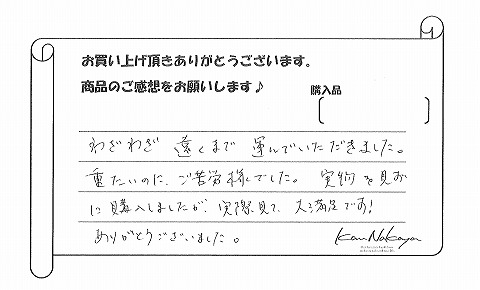 お買い上げ頂きありがとうございます。
商品のご感想をお願いします♪
購入品
わざわざ 遠くまで 運んでいただきました。
重たいのに、ご苦労様でした。 実物を見ず
に購入しましたが、実際見て、大満足です!
ありがとうございました。
Kan Nakaya